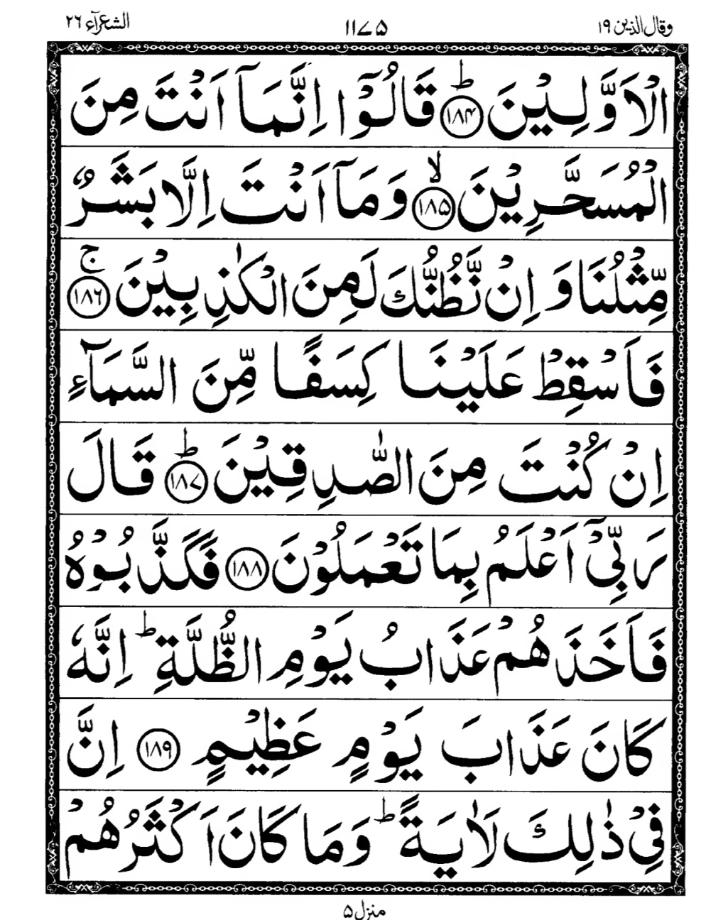 وقال الذین ١٩ ١١٧۵ الشعرآء ٢٦
الْاَوَّلِیْنَ ﴿١٨۴﴾ؕ قَالُوْۤا اِنَّمَاۤ اَنْتَ مِنَ
الْمُسَحَّرِیْنَ ﴿١٨۵﴾ۙ وَمَاۤ اَنْتَ اِلَّا بَشَرٌ
مِّثْلُنَا وَ اِنْ نَّظُنُّكَ لَمِنَ الْكٰذِبِیْنَ ﴿١٨٦﴾ۚ
فَاَسْقِطْ عَلَیْنَا كِسَفًا مِّنَ السَّمَآءِ
اِنْ كُنْتَ مِنَ الصّٰدِقِیْنَ ﴿١٨٧﴾ؕ قَالَ
رَبِّیْۤ اَعْلَمُ بِمَا تَعْمَلُوْنَ ﴿١٨٨﴾ فَكَذَّبُوْهُ
فَاَخَذَهُمْ عَذَابُ یَوْمِ الظُّلَّةِؕ اِنَّهٗ
كَانَ عَذَابَ یَوْمٍ عَظِیْمٍ ﴿١٨٩﴾ اِنَّ
فِیْ ذٰلِكَ لَاٰیَةًؕ وَمَا كَانَ اَكْثَرُهُمْ
منزل ۵